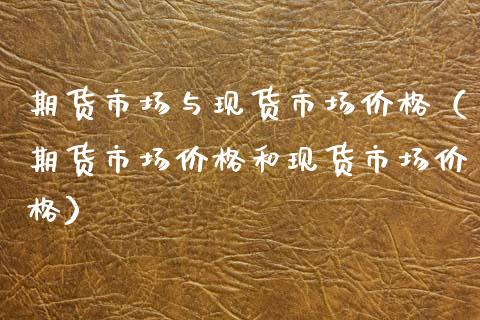 期货市场与现货市场价格（
期货市场价格和现货市场价
格）